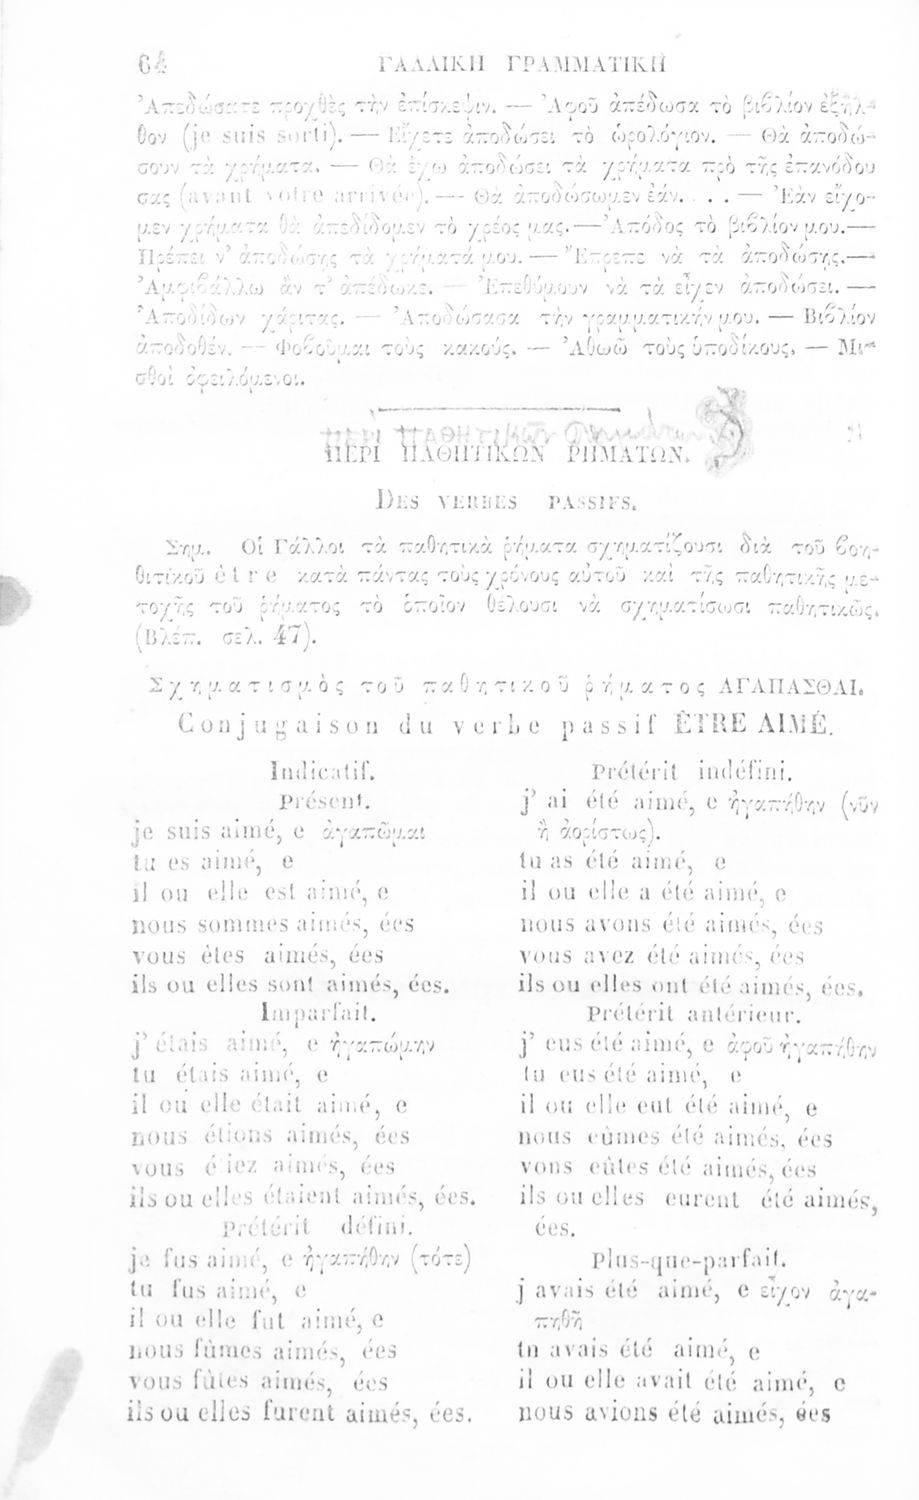 64 ΓΑΛΛΙΚΗ ΓΡΑΜΜΑΤΙΚΗ
Ἀπεδώσατε προχθὲς τὴν ἐπίσκεψιν. — Ἀφοῦ ἀπέδωσα τὸ βιβλίον ἐξῆλ-
θον (je suis sorti). — Εἴχετε ἀποδώσει τὸ ὡρολόγιον. — Θὰ ἀποδώ-
σουν τὰ χρήματα. — Θὰ ἔχω ἀποδώσει τὰ χρήματα πρὸ τῆς ἐπανόδου
σας (avant votre arrivée). — Θὰ ἀποδώσωμεν ἐάν. . . . — Ἐὰν εἴχο-
μεν χρήματα θὰ ἀπεδίδομεν τὸ χρέος μας. — Ἀπόδος τὸ βιβλίον μου. —
Πρέπει ν' ἀποδώσῃς τὰ χρήματά μου. — Ἔπρεπε νὰ τὰ ἀποδώσῃς. —
Ἀμφιβάλλω ἂν τ' ἀπέδωκε. — Ἐπεθύμουν νὰ τὰ εἶχεν ἀποδώσει. —
Ἀποδίδων χάριτας. — Ἀποδώσασα τὴν γραμματικήν μου. — Βιβλίον
ἀποδοθέν. — Φοβοῦμαι τοὺς κακούς. — Ἀθωῶ τοὺς ὑποδίκους. — Μι-
σθοὶ ὀφειλόμενοι.
ΠΕΡΙ ΠΑΘΗΤΙΚΩΝ ΡΗΜΑΤΩΝ.
DES VERBES PASSIFS.
Σημ. Οἱ Γάλλοι τὰ παθητικὰ ῥήματα σχηματίζουσι διὰ τοῦ βοη-
θιτικοῦ être κατὰ πάντας τοὺς χρόνους αὐτοῦ καὶ τῆς παθητικῆς με-
τοχῆς τοῦ ῥήματος τὸ ὁποῖον θέλουσι νὰ σχηματίσωσι παθητικῶς.
(Βλέπ. σελ. 47).
Σχηματισμὸς τοῦ παθητικοῦ ῥήματος ΑΓΑΠΑΣΘΑΙ.
Conjugaison du verbe passif ÊTRE AIMÉ.
Indicatif.
Présent.
je suis aimé, e ἀγαπῶμαι
tu es aimé, e
il ou elle est aimé, e
nous sommes aimés, ées
vous êtes aimés, ées
ils ou elles sont aimés, ées.
Imparfait.
j' étais aimé, e ἠγαπώμην
tu étais aimé, e
il ou elle était aimé, e
nous étions aimés, ées
vous é iez aimés, ées
ils ou elles étaient aimés, ées.
Prétérit défini.
je fus aimé, e ἠγαπήθην (τότε)
tu fus aimé, e
il ou elle fut aimé, e
nous fûmes aimés, ées
vous fûtes aimés, ées
ils ou elles furent aimés, ées.
Prétérit indéfini.
j' ai été aimé, e ἠγαπήθην (νῦν
ἢ ἀορίστως).
tu as été aimé, e
il ou elle a été aimé, e
nous avons été aimés, ées
vous avez été aimés, ées
ils ou elles ont été aimés, ées.
Prétérit antérieur.
j' eus été aimé, e ἀφοῦ ἠγαπήθην
tu eus été aimé, e
il ou elle eut été aimé, e
nous eûmes été aimés, ées
vous eûtes été aimés, ées
ils ou elles eurent été aimés,
ées.
Plus-que-parfait.
j avais été aimé, e εἶχον ἀγα-
πηθῆ
tu avais été aimé, e
il ou elle avait été aimé, e
nous avions été aimés, ées